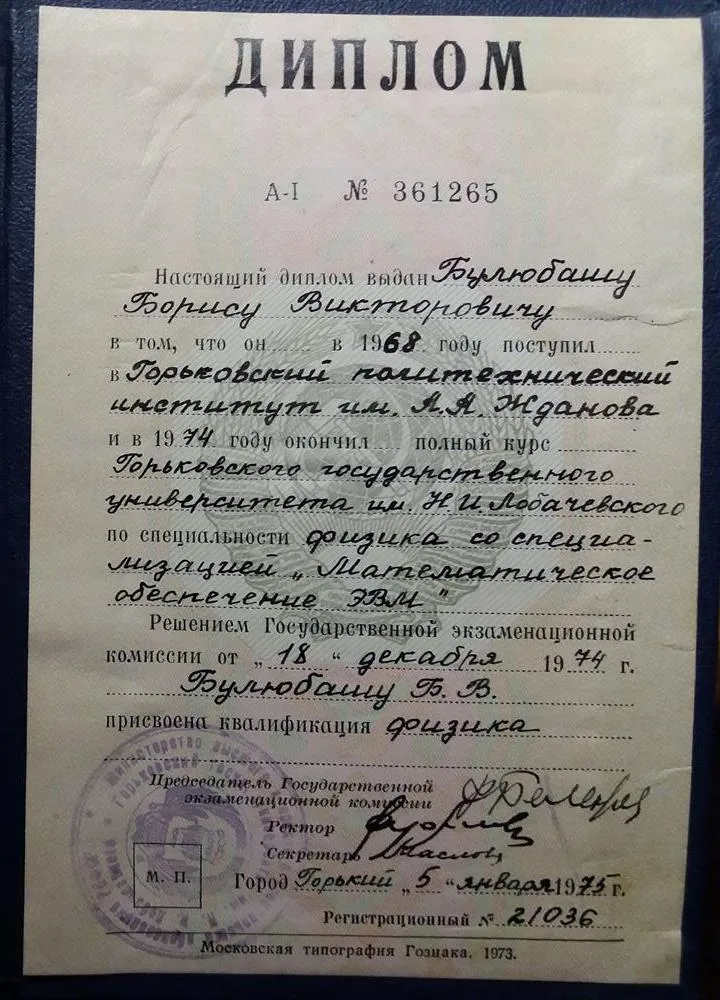 ДИПЛОМ
А-I № 361265
Настоящий диплом выдан Булюбашу
Борису Викторовичу
в том, что он в 1968 году поступил
в Горьковский политехнический
институт им. А.А. Жданова
и в 1974 году окончил полный курс
Горьковского государственного
университета им. Н.И. Лобачевского
по специальности физика со специа-
лизацией „Математическое
обеспечение ЭВМ"
Решением Государственной экзаменационной
комиссии от „18" декабря 1974 г.
Булюбашу Б. В.
присвоена квалификация физика
Председатель Государственной
экзаменационной комиссии
Ректор
Секретарь
М. П.
Город Горький „5" января 1975 г.
Регистрационный № 21036
Московская типография Гознака. 1973.